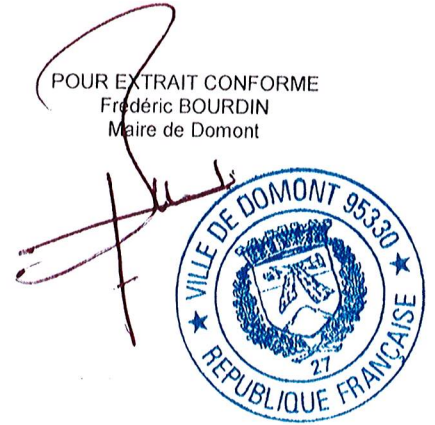 POUR EXTRAIT CONFORME
Frédéric BOURDIN
Maire de Domont
VILLE DE DOMONT 95330
27
REPUBLIQUE FRANÇAISE